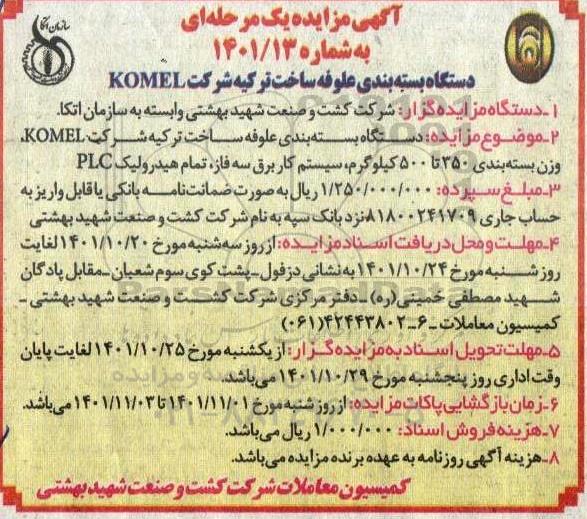 آگهی مزایده یک مرحله‌ای
به شماره ۱۴۰۱/۱۳
سازمان اتکا
دستگاه بسته‌بندی علوفه ساخت ترکیه شرکت KOMEL
۱ـ دستگاه مزایده‌گزار: شرکت کشت و صنعت شهید بهشتی وابسته به سازمان اتکا.
۲ـ موضوع مزایده: دستگاه بسته‌بندی علوفه ساخت ترکیه شرکت KOMEL،
وزن بسته‌بندی ۳۵۰ تا ۵۰۰ کیلوگرم، سیستم کار برق سه فاز، تمام هیدرولیک PLC
۳ـ مبلغ سپرده: ۱/۲۵۰/۰۰۰/۰۰۰ ریال به صورت ضمانت‌نامه بانکی یا قابل واریز به
حساب جاری ۸۱۸۰۰۲۴۱۷۰۹ نزد بانک سپه به نام شرکت کشت و صنعت شهید بهشتی
۴ـ مهلت و محل دریافت اسناد مزایده: از روز سه‌شنبه مورخ ۱۴۰۱/۱۰/۲۰ لغایت
روز شنبه مورخ ۱۴۰۱/۱۰/۲۴ به نشانی دزفول ـ پشت کوی سوم شعبان ـ مقابل پادگان
شهید مصطفی خمینی(ره) ـ دفتر مرکزی شرکت کشت و صنعت شهید بهشتی ـ
کمیسیون معاملات ـ ۶ـ۴۲۴۴۳۸۰۲(۰۶۱)
۵ـ مهلت تحویل اسناد به مزایده‌گزار: از یکشنبه مورخ ۱۴۰۱/۱۰/۲۵ لغایت پایان
وقت اداری روز پنجشنبه مورخ ۱۴۰۱/۱۰/۲۹ می‌باشد.
۶ـ زمان بازگشایی پاکات مزایده: از روز شنبه مورخ ۱۴۰۱/۱۱/۰۱ تا ۱۴۰۱/۱۱/۰۳ می‌باشد.
۷ـ هزینه فروش اسناد: ۱/۰۰۰/۰۰۰ ریال می‌باشد.
۸ـ هزینه آگهی روزنامه به عهده برنده مزایده می‌باشد.
کمیسیون معاملات شرکت کشت و صنعت شهید بهشتی